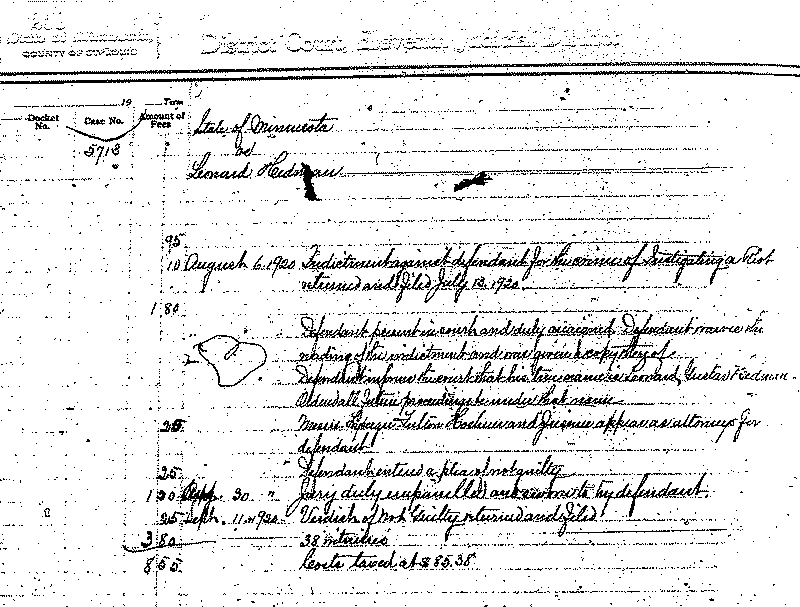 State of Minnesota,
COUNTY OF ST. LOUIS
District Court, Eleventh Judicial District
19 Term
Docket No.
Case No.
Amount of Fees
5713
State of Minnesota
vs
Leonard Hedman
95
10 August 6. 1920 Indictment against defendant for the crime of Instigating a Riot
returned and filed July 12. 1920.
1 80
Defendant present in court and duly arraigned. Defendant waives the
reading of the indictment and was given a copy thereof.
Defendant informs the court that his true name is Leonard Gustav Hedman
Ordered all future proceedings be under that name
25 Fulton and appear as attorneys for
defendant
25 Defendant entered a plea of not guilty
1 30 " Jury duly empanelled and sworn to try defendant.
25 Sept. 11 1920 Verdict of Not Guilty returned and filed
3 80 38
8 55 Costs taxed at $85.38